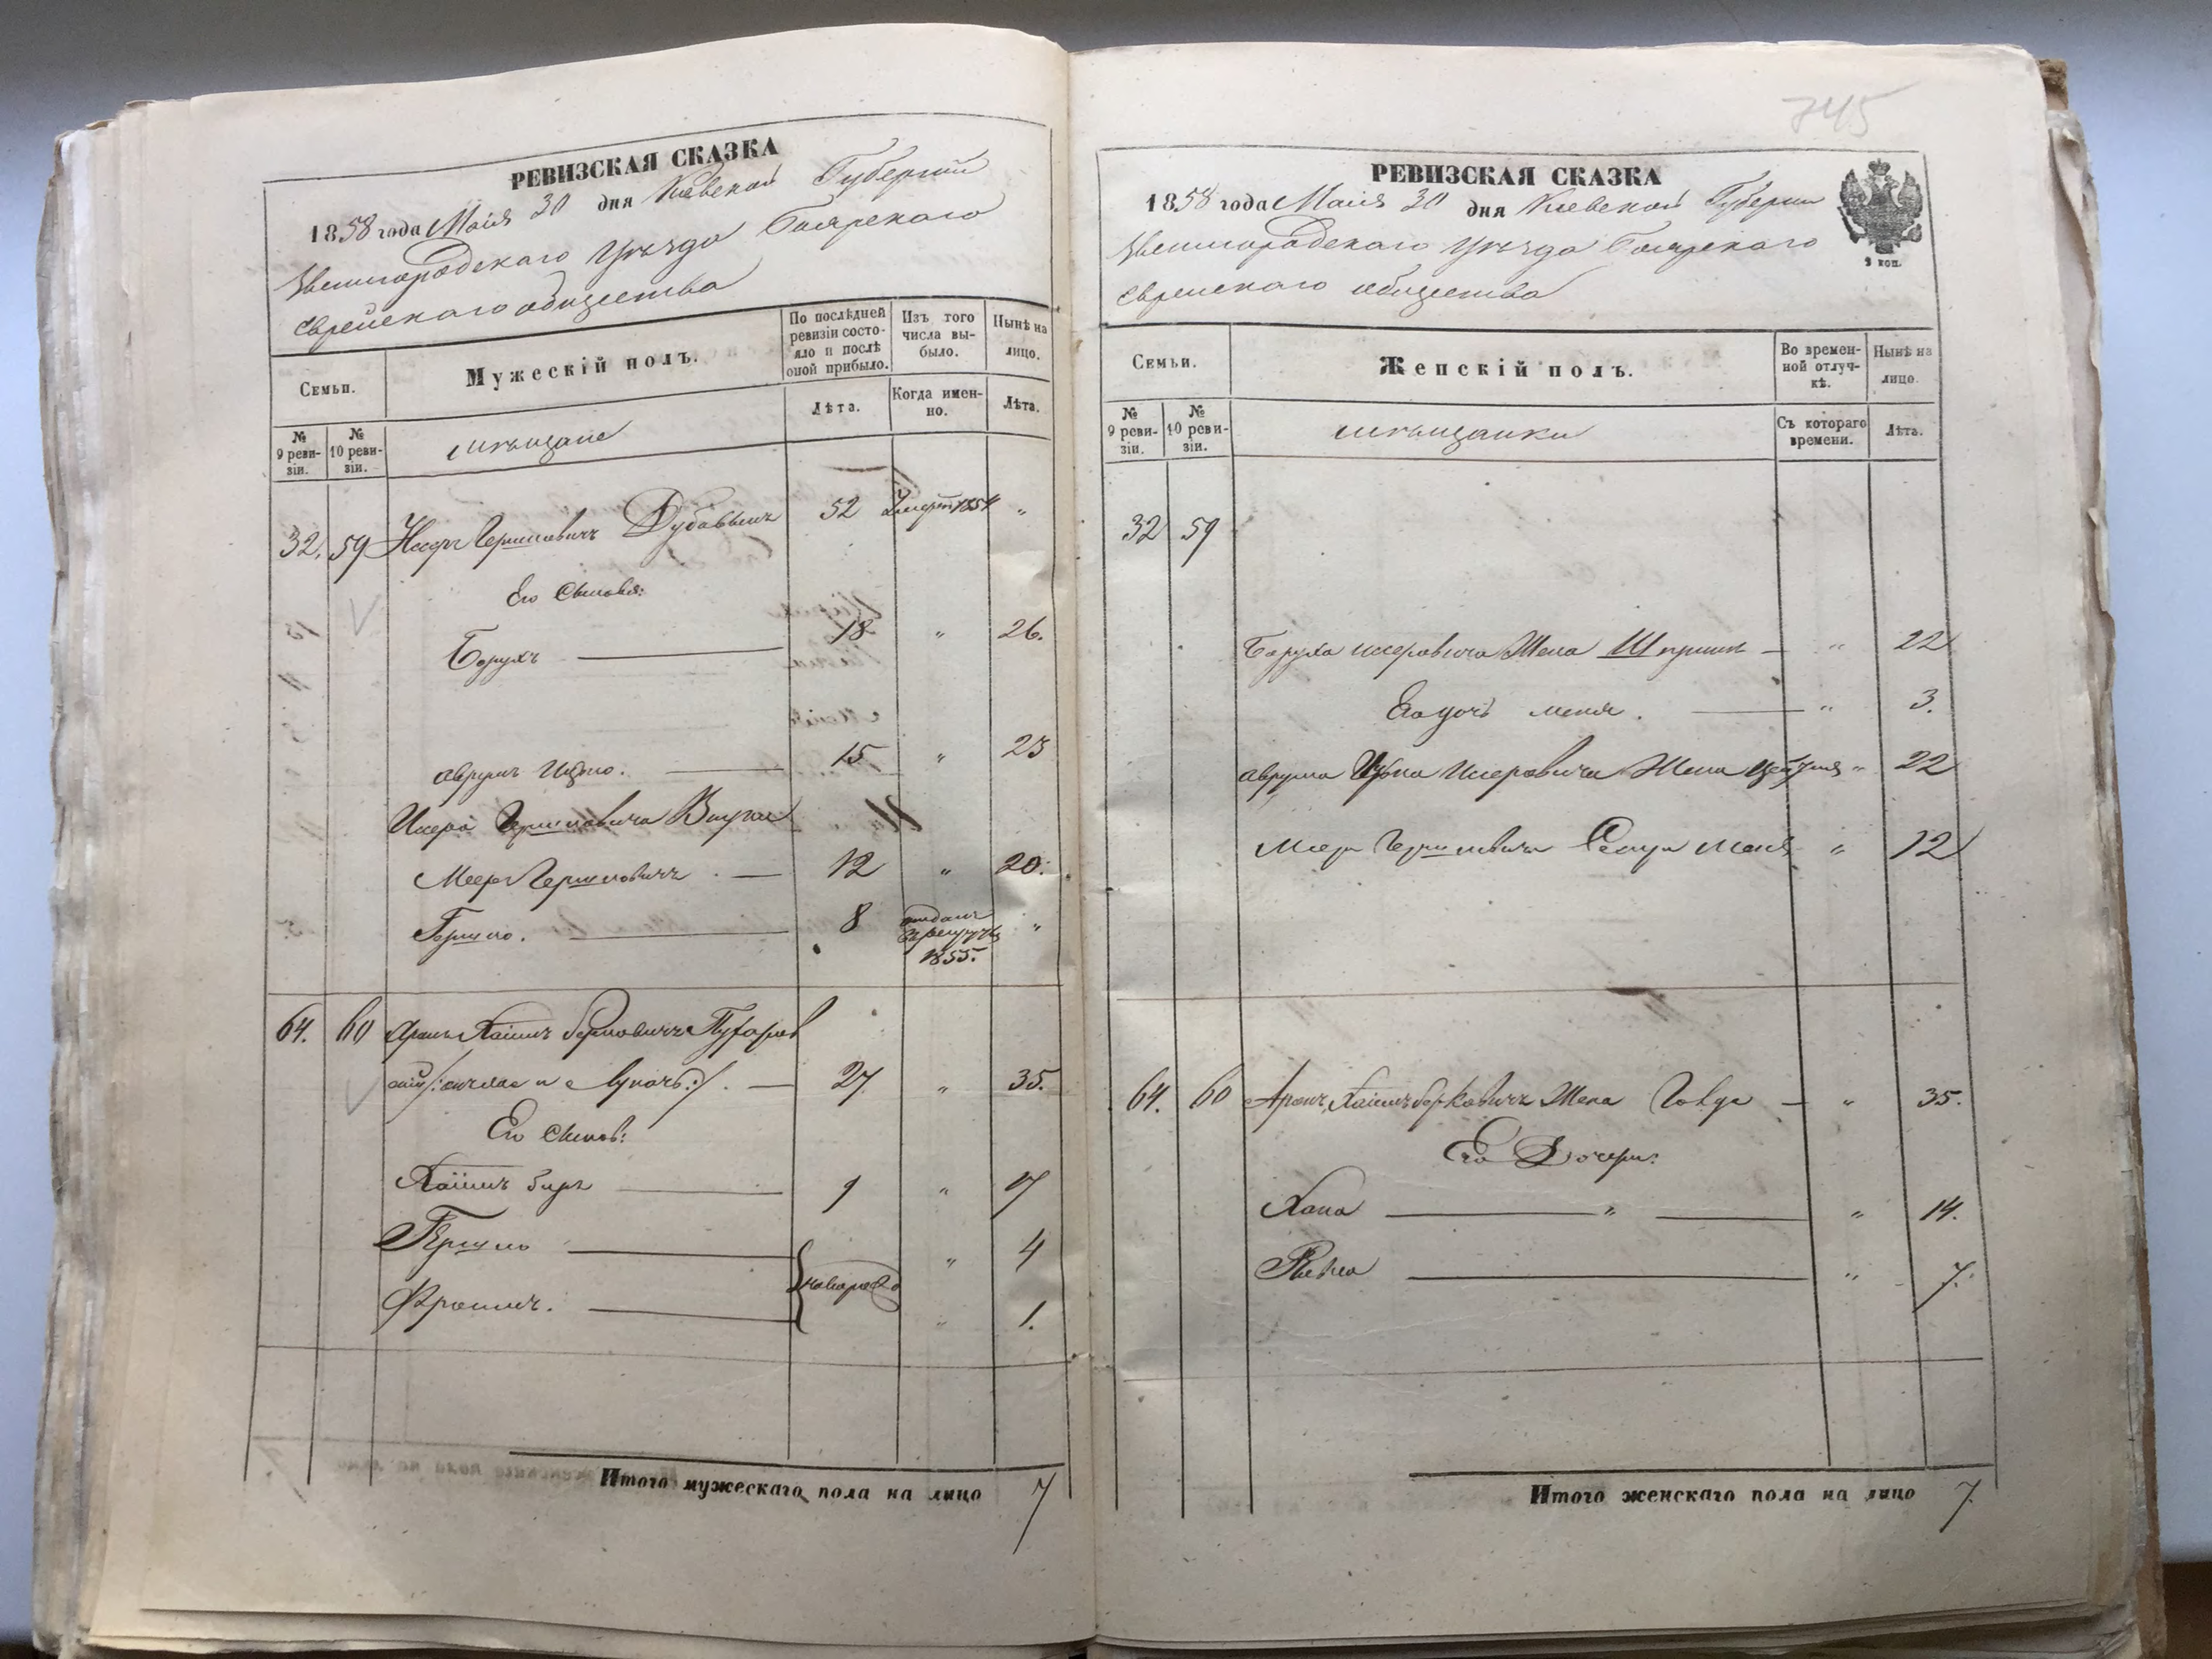 745
РЕВИЗСКАЯ СКАЗКА
1858 года Маія 30 дня Киевской Губерніи
Звенигородскаго Уѣзда Боярскаго
Еврейскаго общества
Семьи.
Мужескій полъ.
По послѣдней ревизіи состояло и послѣ оной прибыло.
Изъ того числа выбыло.
Нынѣ на лицо.
Лѣта.
Когда именно.
Лѣта.
№ 9 ревизіи.
№ 10 ревизіи.
мѣщане
32. 59 Иосеръ Гершковичъ Дубовый 52 Умеръ 1854 "
Его Сыновья:
Борухъ 18 " 26.
Аврумъ Ицко. 15 " 23
Иосера Гершковича
Мееръ Гершковичъ 12 " 20.
Гершко. 8 отданъ въ рекруты 1855. "
64. 60 Аронъ Хаимъ Берковичъ
27 " 35.
Его Сынов:
Хаимъ Беръ 9 " 17
Гершко " 4
Фроимъ. новорожд " 1.
Итого мужескаго пола на лицо 7
РЕВИЗСКАЯ СКАЗКА
1858 года Маія 30 дня Киевской Губерніи
Звенигородскаго Уѣзда Боярскаго
Еврейскаго общества
2 коп.
Семьи.
Женскій полъ.
Во временной отлучкѣ.
Нынѣ на лицо.
№ 9 ревизіи.
№ 10 ревизіи.
мѣщанки
Съ котораго времени.
Лѣта.
32 59
Боруха Иосеровича Жена " 22
Его дочь Меня. " 3.
Аврума Ицка Иосеровича Жена " 22
Меера Гершковича Сестра Меня " 12
64. 60 Аронъ Хаимъ Берковичъ Жена Говда " 35.
Его Дочери:
Хана " " 14.
Ривка " 7.
Итого женскаго пола на лицо 7.